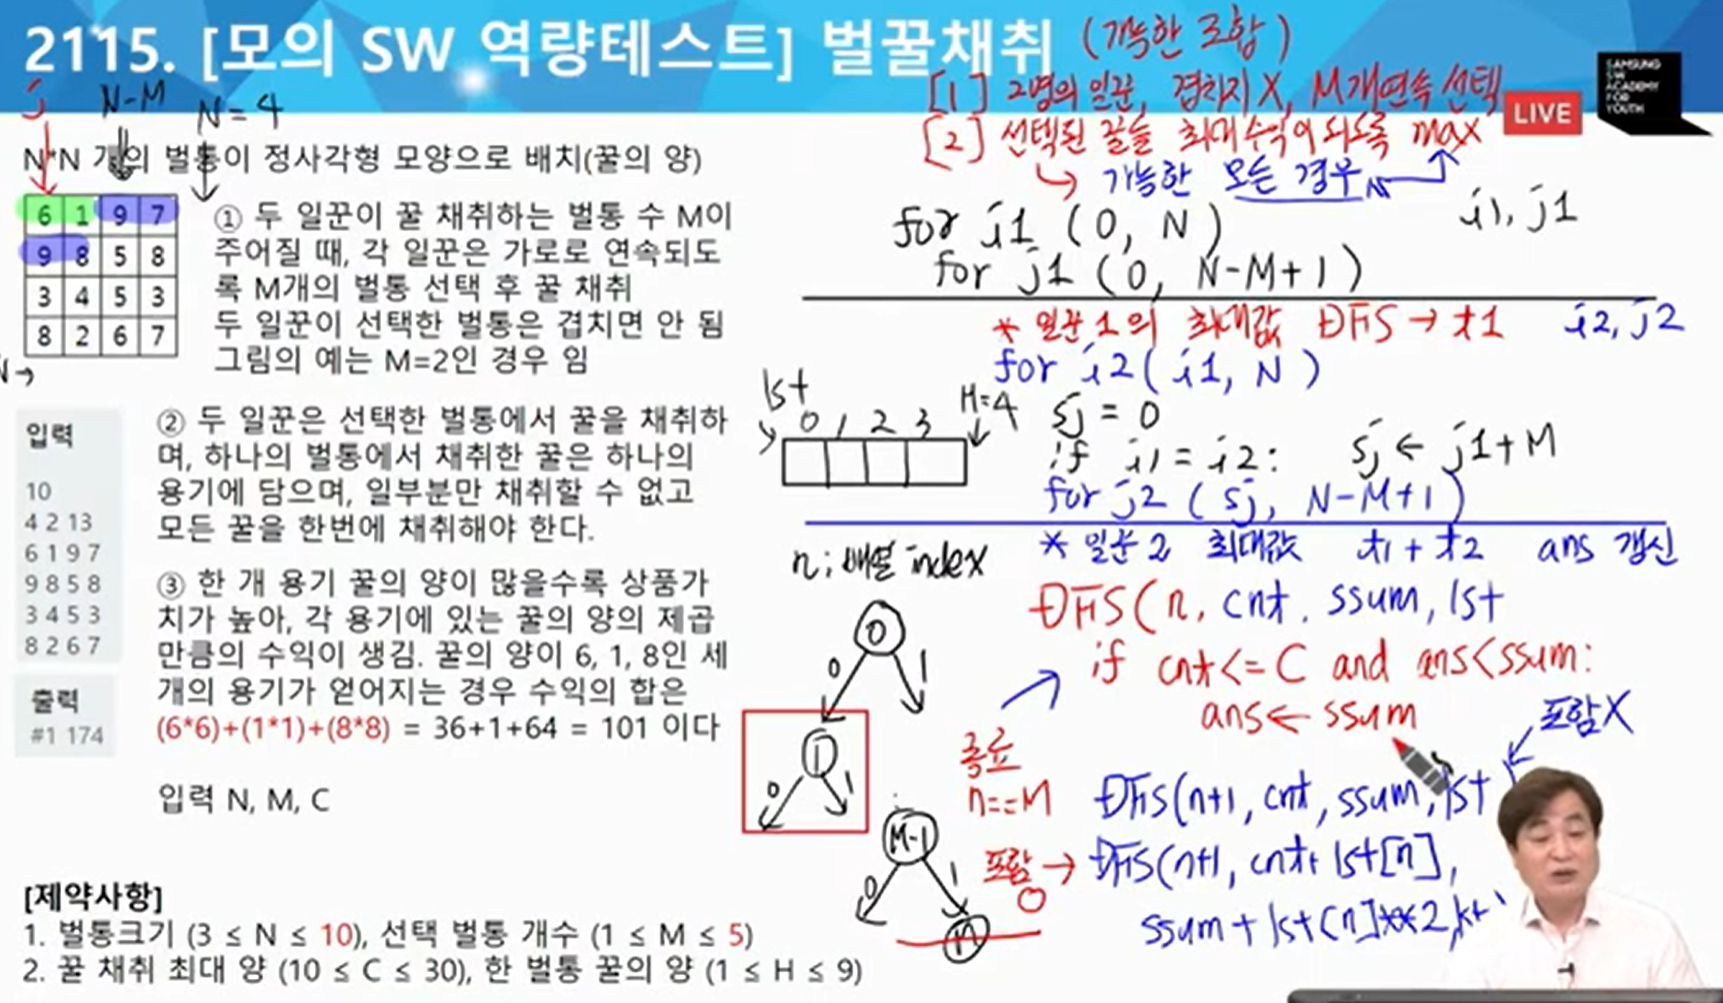 2115. [모의 SW 역량테스트] 벌꿀채취 (가능한 조합)
SAMSUNG
SW
ACADEMY
FOR
YOUTH
LIVE
[1] 2명의 일꾼, 겹치지X, M개연속 선택
[2] 선택된 꿀들 최대수익이 되도록 max
가능한 모든 경우
j
N-M
N=4
N*N 개의 벌통이 정사각형 모양으로 배치(꿀의 양)
6 1 9 7
9 8 5 8
3 4 5 3
8 2 6 7
N→
① 두 일꾼이 꿀 채취하는 벌통 수 M이
주어질 때, 각 일꾼은 가로로 연속되도
록 M개의 벌통 선택 후 꿀 채취
두 일꾼이 선택한 벌통은 겹치면 안 됨
그림의 예는 M=2인 경우 임
② 두 일꾼은 선택한 벌통에서 꿀을 채취하
며, 하나의 벌통에서 채취한 꿀은 하나의
용기에 담으며, 일부분만 채취할 수 없고
모든 꿀을 한번에 채취해야 한다.
③ 한 개 용기 꿀의 양이 많을수록 상품가
치가 높아, 각 용기에 있는 꿀의 양의 제곱
만큼의 수익이 생김. 꿀의 양이 6, 1, 8인 세
개의 용기가 얻어지는 경우 수익의 합은
(6*6)+(1*1)+(8*8) = 36+1+64 = 101 이다
입력 N, M, C
입력
10
4 2 13
6 1 9 7
9 8 5 8
3 4 5 3
8 2 6 7
출력
#1 174
[제약사항]
1. 벌통크기 (3 ≤ N ≤ 10), 선택 벌통 개수 (1 ≤ M ≤ 5)
2. 꿀 채취 최대 양 (10 ≤ C ≤ 30), 한 벌통 꿀의 양 (1 ≤ H ≤ 9)
for i1 (0, N)
i1, j1
for j1 (0, N-M+1)
* 일꾼1의 최대값 DFS → t1
i2, j2
for i2(i1, N)
sj = 0
if i1 = i2: sj ← j1+M
for j2 (sj, N-M+1)
* 일꾼2 최대값 t1+t2 ans 갱신
lst
0 1 2 3
=4
n; 배열 index
0
0 1
1
0 1
M-1
0 1
DFS(n, cnt, ssum, lst
if cnt<=C and ans<ssum:
ans← ssum
종료
n==M
포함X
DFS(n+1, cnt, ssum, lst
포함 → DFS(n+1, cnt+lst[n],
O
ssum+lst[n]**2, lst